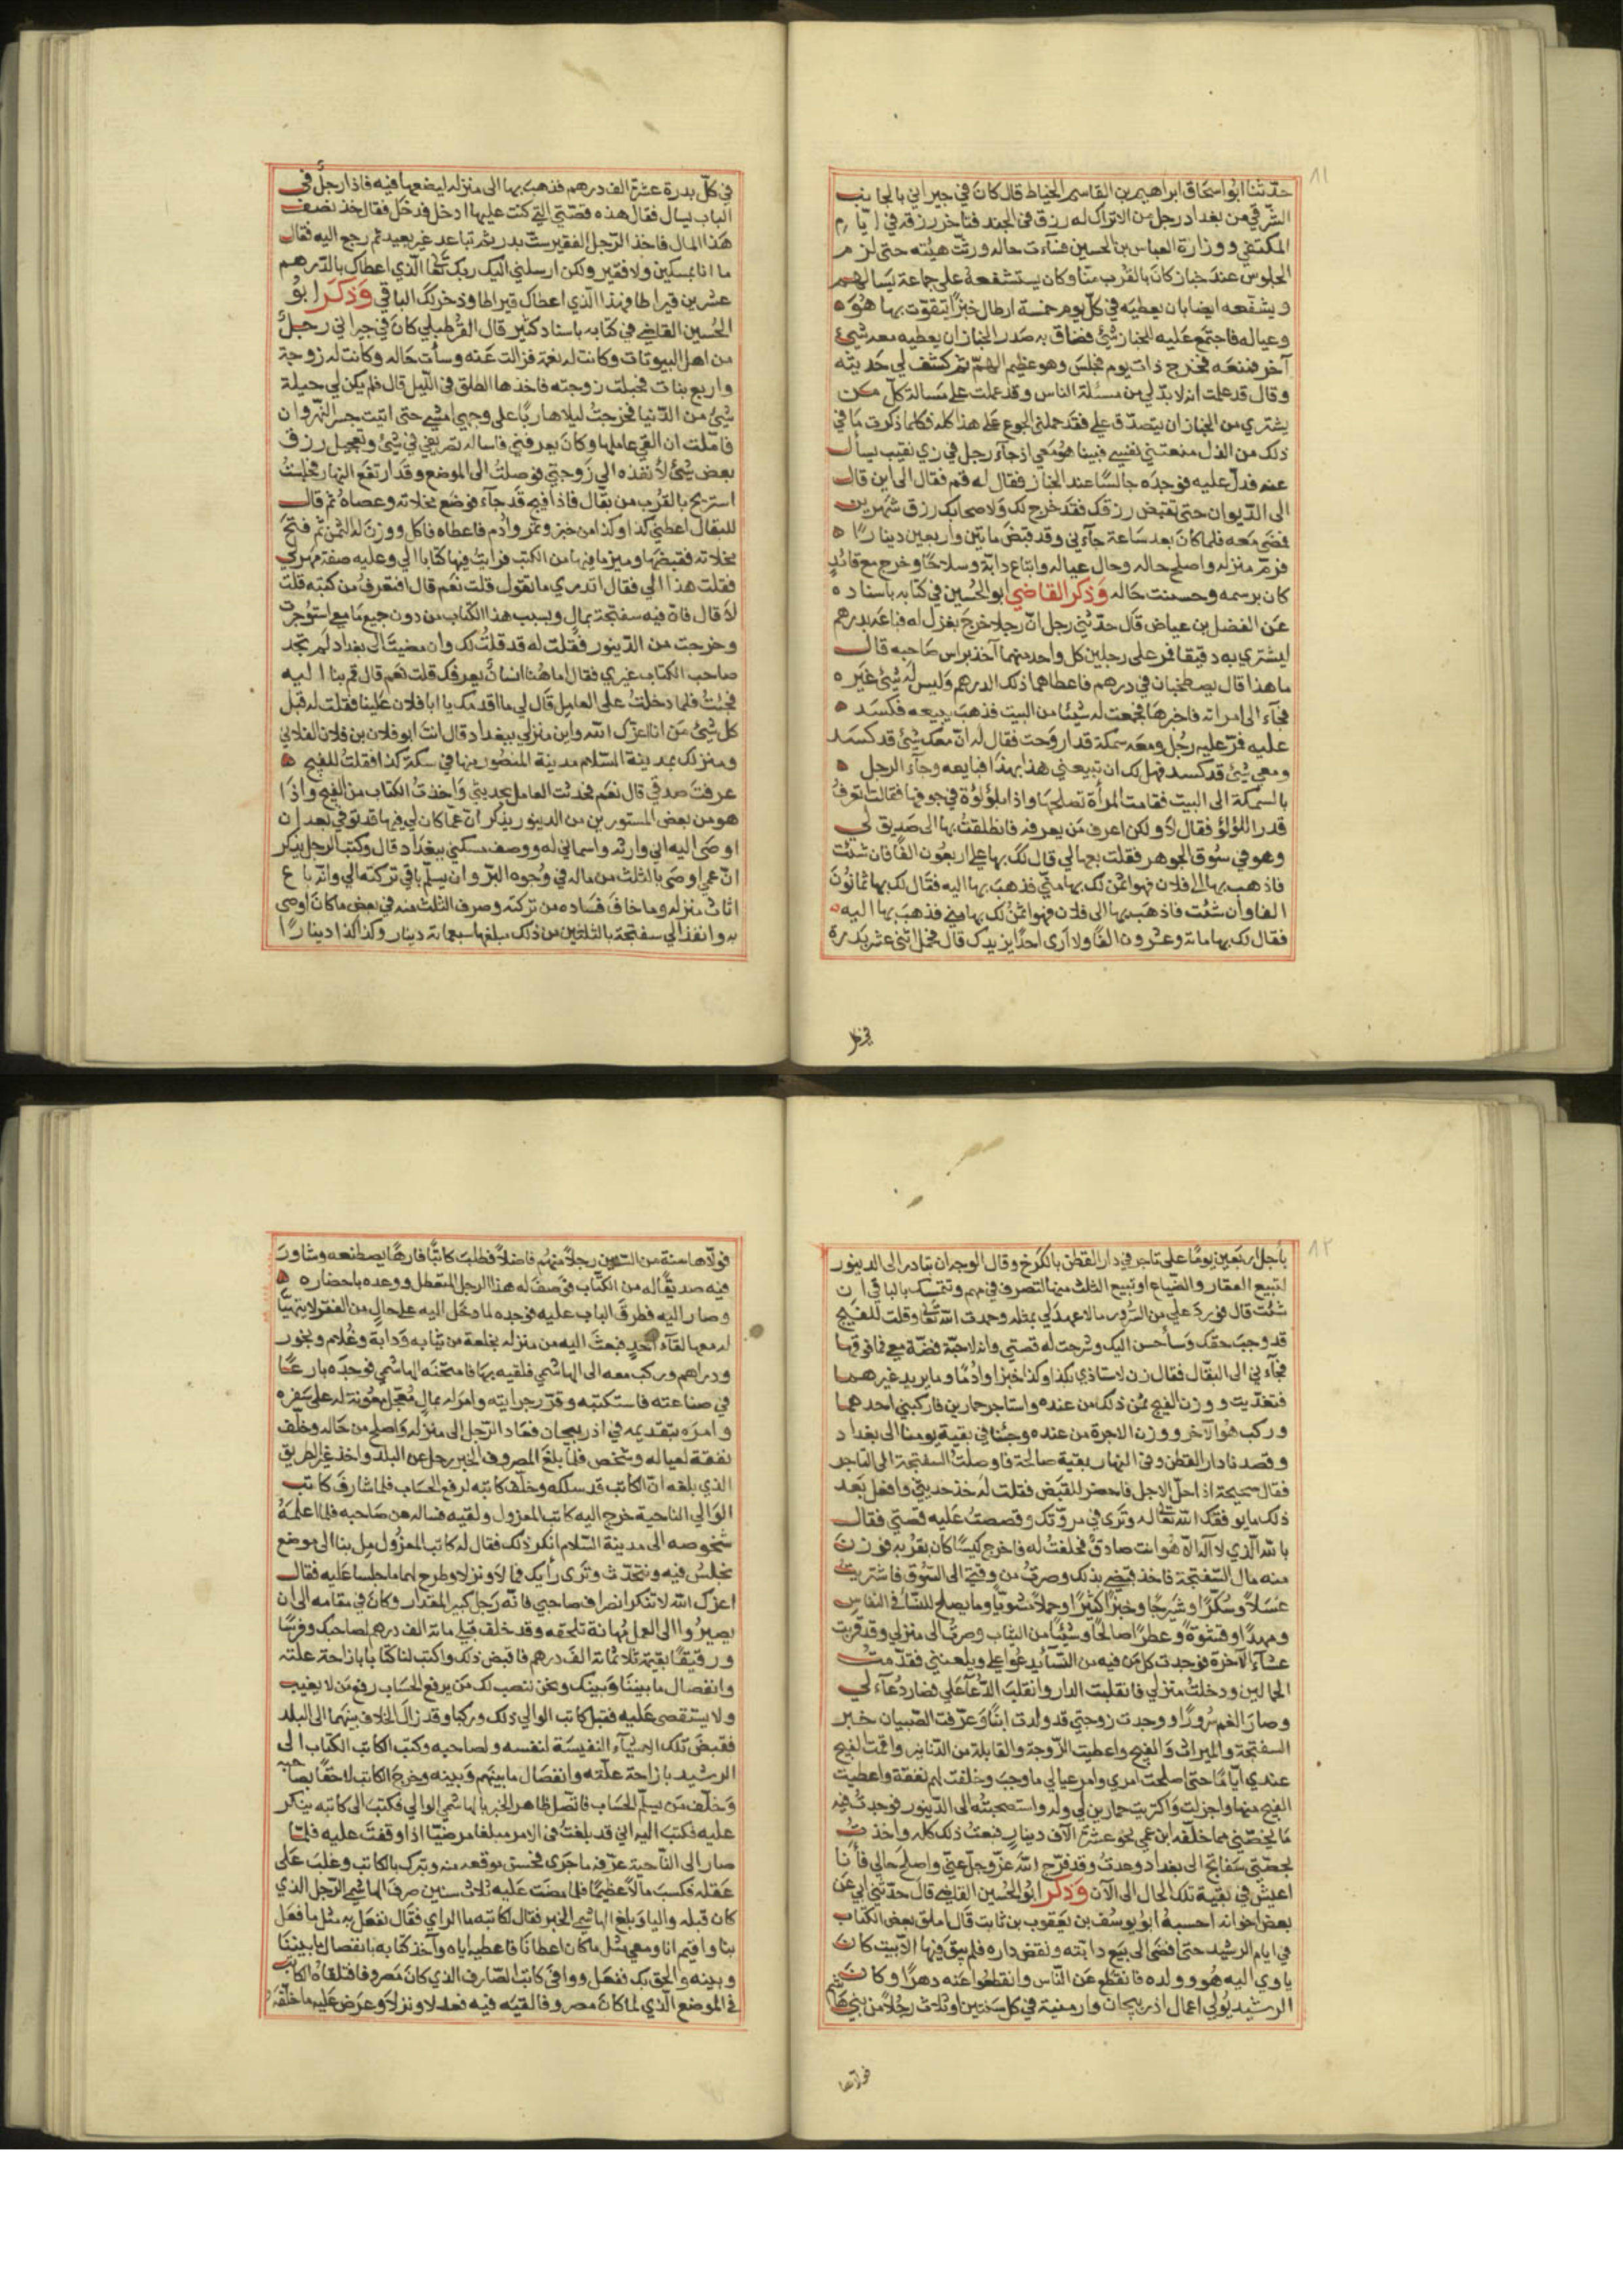 ٨١
حدثنا ابو اسحاق ابراهيم بن القاسم الخياط قال كان في جيراني بالجانب
الشرقي من بغداد رجل من الاتراك له رزق في الجند فتاخر رزقه في ايام
المكتفي ووزارة العباس بن الحسين فساءت حاله ورثت هيئته حتى لزم
الجلوس عند خباز كان بالقرب منا وكان يستشفعه على جماعة يسالهم
ويشفعه ايضا بان يعطيه في كل يوم خمسة ارطال خبزا يتقوت بها هو
وعياله فاجتمع عليه للخباز شئ فضاق به صدر الخباز ان يعطيه معه شئ
آخر فمنعه فخرج ذات يوم فجلس وهو عظيم الهم ثم كشف لي حديثه
وقال قد علمت انه لا بد لي من مسئلة الناس وقد عملت على مسالة كل من
يشتري من الخباز ان يتصدق علي فقد حملني الجوع على هذا كله فكلما ذكرت ما في
ذلك من الذل منعتني نفسي فبينا هو معي اذ جآء رجل في زي نقيب يسأل
عنه فدل عليه فوجده جالسا عند الخباز فقال له قم فقال الى اين قال
الى الديوان حتى تقبض رزقك فقد خرج لك ولاصحابك رزق شهرين
فمضى معه فلما كان بعد ساعة جآءني وقد قبض مايتين واربعين دينارا ه
فرم منزله واصلح حاله وحال عياله وابتاع دابة وسلاحا وخرج مع قائد
كان برسمه وحسنت حاله وذكر القاضي ابو الحسين في كتابه باسناده
عن الفضل بن عياض قال حدثني رجل ان رجلا خرج بغزل له فباعه بدرهم
ليشتري به دقيقا فمر على رجلين كل واحد منهما آخذ براس صاحبه قال
ما هذا قال يصطخبان في درهم فاعطاهما ذلك الدرهم وليس له شئ غيره
فجآء الى امراته فاخبرها فجمعت له شيئا من البيت فذهب يبيعه فكسد ه
عليه فمر عليه رجل ومعه سمكة قد اروحت فقال له ان معك شئ قد كسد
ومعي شئ قد كسد فهل لك ان تبيعني هذا بهذا فبايعه وجآء الرجل ه
بالسمكة الى البيت فقامت المرأة تصلحها واذا بلؤلؤة في جوفها فقالت اتعرف
قدر اللؤلؤ فقال لا ولكن اعرف من يعرفه فانطلقت بها الى صديق لي
وهو في سوق الجوهر فقلت بعها لي قال لك بها علي اربعون الفا فان شئت
فاذهب بها الى فلان فهو اثمن لك بها مني فذهب بها اليه فقال لك بها ثمانون
الفا وأن شئت فاذهب بها الى فلان فهو اثمن لك بها مني فذهب بها اليه ه
فقال لك بها مائة وعشرون الفا ولا ارى احدا يزيدك قال فحمل اثني عشر بدرة
في كل
في كل بدرة عشرة الف درهم فذهب بها الى منزله ليضعها فيه فاذا رجل في
الباب يسال فقال هذه قصتي التي كنت عليها ادخل فدخل فقال خذ نصف
هذا المال فاخذ الرجل الفقير ست بدر ثم تباعد غير بعيد ثم رجع اليه فقال
ما انا بمسكين ولا فقير ولكن ارسلني اليك ربك تعالى الذي اعطاك بالدرهم
عشرين قيراطا فهذا الذي اعطاك قيراطا وذخر لك الباقي وذكر ابو
الحسين القاضي في كتابه باسناد كثير قال القرطبلي كان في جيراني رجل
من اهل البيوتات وكانت له نعمة فزالت عنه وسأت حاله وكانت له زوجة
واربع بنات فحبلت زوجته فاخذها الطلق في الليل قال فلم يكن لي حيلة
شئ من الدنيا فخرجت ليلا هاربا على وجهي امشي حتى اتيت جسر النهروان
فاملت ان القى عاملها وكان يعرفني فاساله تصريفي في شئ وتعجيل رزق
بعض شئ لانفذه الى زوجتي فوصلت الى الموضع وقد ارتفع النهار فجلست
استريح بالقرب من بقال فاذا فيج قد جآء فوضع مخلاته وعصاه ثم قال
للبقال اعطني كذا وكذا من خبز وتمر وادم فاعطاه فاكل ووزن له الثمن ثم فتح
مخلاته فقبضها وميز ما فيها من الكتب فرايت فيها كتابا الي وعليه صفة منزلي
فقلت هذا الي فقال اتدري ما تقول قلت نعم قال افتعرف من كتبه قلت
لا قال فان فيه سفتجة بمال وبسبب هذا الكتاب من دون جميع ما معي استؤجرت
وخرجت من الدينور فقلت له قد قلت لك وان مضيت الى بغداد لم تجد
صاحب الكتاب غيري فقال اما ههنا انسان يعرفك قلت نعم قال قم بنا اليه
فجئت فلما دخلت على العامل قال لي ما اقدمك يا ابا فلان علينا فقلت له قبل
كل شئ من انا اعزك الله واين منزلي ببغداد قال انت ابو فلان بن فلان الفلاني
ومنزلك بمدينة السلام مدينة المنصور منها في سكة كذا فقلت للفيج ه
عرفت صدقي قال نعم فحدثت العامل بحديثي واخذت الكتاب من الفيج واذا
هو من بعض المستورين من الدينور يذكر ان عما كان لي فيها قد توفي بعد ان
اوصى اليه اني وارثه واسماني له ووصف مسكني ببغداد قال وكتب الرجل يذكر
ان عمي اوصى بالثلث من ماله في وجوه البر وان يسلم باقي تركته الي وانه باع
اثاث منزله وما خاف فساده من تركته وصرف الثلث منه في بعض ما كان اوصى
به وانفذ الي سفتجة بالثلثين من ذلك مبلغها سبعمائة دينار وكذا كذا دينارا
٨٢
بأجل اربعين يوما على تاجر في دار القطن بالكرخ وقال الوجه ان تبادر الى الدينور
لتبيع العقار والضياع او تبيع الثلث منها لتصرف في مهم وتتمسك بالباقي ان
شئت قال فورد علي من السرور ما لا عهد لي بمثله وحمدت الله تعالى وقلت للفيج
قد وجب حقك وسأحسن اليك وشرحت له قصتي وانه لا حبة فضة معي فما فوقها
فجآء بي الى البقال فقال زن لاستاذي بكذا وكذا خبزا وادما وما يريد غيرهما
فتغديت ووزن الفيج ثمن ذلك من عنده واستاجر حمارين فاركبني احدهما
وركب هو الآخر ووزن الاجرة من عنده وجئنا في بقية يومنا الى بغداد
وقصدنا دار القطن وفي النهار بقية صالحة فاوصلت السفتجة الى التاجر
فقال صحيحة اذا حل الاجل فاحضر للقبض فقلت له خذ حديثي وافعل بعد
ذلك ما يوفقك الله تعالى له وترى في مروتك وقصصت عليه قصتي فقال
بالله الذي لا اله الا هو انت صادق فحلفت له فاخرج كيسا كان بقربه فوزن
منه مال السفتجة فاخذ قبضي بذلك وصرت من وقتي الى السوق فاشتريت
عسلا وسكرا وشيرجا وخبزا كثيرا وحملا مشويا وما يصلح للنسآء في النفاس
ومهدا وقشوة وعطرا صالحا وشيئا من الثياب وصرت الى منزلي وقد قربت
عشآء الآخرة فوجدت كل من فيه من النسآء يدعوا علي ويلعنني فقدمت
الحمالين ودخلت منزلي فانقلبت الدار وانقلب الدعآء علي فصار دعآء لي
وصار الغم سرورا ووجدت زوجتي قد ولدت ابنا وعرفت الصبيان خبر
السفتجة والميراث والفيج واعطيت الزوجة والقابلة من الدنانير واقمت الفيج
عندي اياما حتى اصلحت امري وامر عيالي ما وجب وخلفت لهم نفقة واعطيت
الفيج منها واجزلت واكتريت حمارين لي وله واستصحبته الى الدينور فوجدت فيه
ما يخصني مما خلفه ابن عمي نحو عشرة آلاف دينار فبعت ذلك كله واخذت
بحصتي سفاتج الى بغداد وعدت وقد فرج الله عز وجل عني واصلح حالي فأنا
اعيش في بقية تلك الحال الى الآن وذكر ابو الحسين القاضي قال حدثني ابي عن
بعض اخوانه احسبه ابو يوسف بن يعقوب بن ثابت قال املق بعض الكتاب
في ايام الرشيد حتى افضى الى بيع دابته ونقض داره فلم يبق فيها الا بيت كان
ياوي اليه هو وولده فانقطع عن الناس وانقطعوا عنه دهرا وكان
الرشيد يولي اعمال اذربيجان وارمنية في كل سنتين او ثلاث رجلا من بني هاشم
فولاها
فولاها سنة من السنين رجلا منهم فاضلا فطلب كاتبا فارها يصطنعه وشاور
فيه صديقا له من الكتاب فوصف له هذا الرجل المتعطل ووعده باحضاره ه
وصار اليه فطرق الباب عليه فوجده لما دخل اليه على حال من الفقر لا يتهيا
له معها لقآء احد فبعث اليه من منزله بخلعة من ثيابه ودابة وغلام وبخور
ودراهم وركب معه الى الهاشمي فلقيه بها فامتحنه الهاشمي فوجده بارعا
في صناعته فاستكتبه وقرر جرايته وامر له بمال معجل معونة له على سفره
وامره بتقديمه في اذربيجان فعاد الرجل الى منزله واصلح من حاله وخلف
نفقة لعياله وشخص فلما بلغ المصروف الخبر رحل عن البلد واخذ غير الطريق
الذي بلغه ان الكاتب قد سلكه وخلف كاتبه لرفع الحساب فلما شارف كاتب
الوالي الناحية خرج اليه كاتب المعزول ولقيه فساله عن صاحبه فلما اعلمه
شخوصه الى مدينة السلام انكر ذلك فقال له كاتب المعزول مل بنا الى موضع
نجلس فيه ونتحدث وترى رأيك فمالا ونزلا وطرح لهما ما جلسا عليه فقال
اعزك الله لا تنكر انصراف صاحبي فانه رجل كبير المقدار وكان في مقامه الى ان
يصيروا الى العمل مهانة تلحقه وقد خلف قبلي مائة الف درهم لصاحبك وفرشا
ورقيقا بقيمة ثلاثمائة الف درهم فاقبض ذلك واكتب لنا كتابا بازاحة علته
وانفصال ما بيننا وبينك ونحن ننصب لك من يرفع الحساب رفع من لا يغيب
ولا يستقصى عليه فقبل كاتب الوالي ذلك وركبا وقد زال الخلاف بينهما الى البلد
فقبض تلك الاشيآء النفيسة لنفسه ولصاحبه وكتب الكاتب الكتاب الى
الرشيد بازاحة علته وانفصال ما بينهم وبينه وخرج الكاتب لاحقا بصاحبه
وخلف من يسلم الحساب فاتصل ظاهر الخبر بالهاشمي الوالي فكتب الى كاتبه ينكر
عليه فكتب اليه اني قد بلغت في الامر مبلغا مرضيا اذا وقفت عليه فلما
صار الى الناحية عرفه ما جرى فحسن موقعه منه وتبرك بالكاتب وغلب على
عقله فكسب مالا عظيما فلما مضت عليه ثلاث سنين صرف الهاشمي الرجل الذي
كان قبله واليا وبلغ الهاشمي الخبر فقال لكاتبه ما الراي فقال نفعل به مثل ما فعل
بنا واقيم انا ومعي مثل ما كان اعطانا فاعطيه اياه وآخذ كتابه بانفصال ما بيننا
وبينه والحق بك ففعل ووافى كاتب الصارف الذي كان مصروفا فتلقاه الكاتب
في الموضع الذي لما كان مصروفا لقيه فيه فعدلا ونزلا وعرض عليه ما خلفه